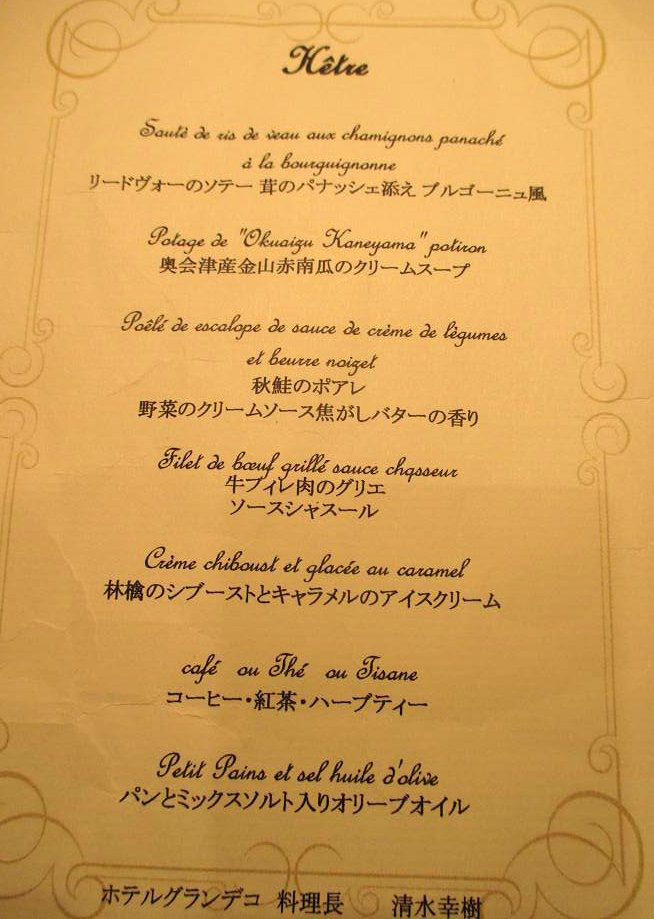 Hêtre
Sautè de ris de veau aux chamignons panaché
à la bourguignonne
リードヴォーのソテー 茸のパナッシェ添え ブルゴーニュ風
Potage de "Okuaizu Kaneyama" potiron
奥会津産金山赤南瓜のクリームスープ
Poêlé de escalope de sauce de crème de lègumes
et beurre noizet
秋鮭のポアレ
野菜のクリームソース焦がしバターの香り
Filet de bœuf grillé sauce chqsseur
牛フィレ肉のグリエ
ソースシャスール
Crème chiboust et glacée au caramel
林檎のシブーストとキャラメルのアイスクリーム
café ou Thé ou Tisane
コーヒー・紅茶・ハーブティー
Petit Pains et sel huile d'olive
パンとミックスソルト入りオリーブオイル
ホテルグランデコ 料理長 清水幸樹